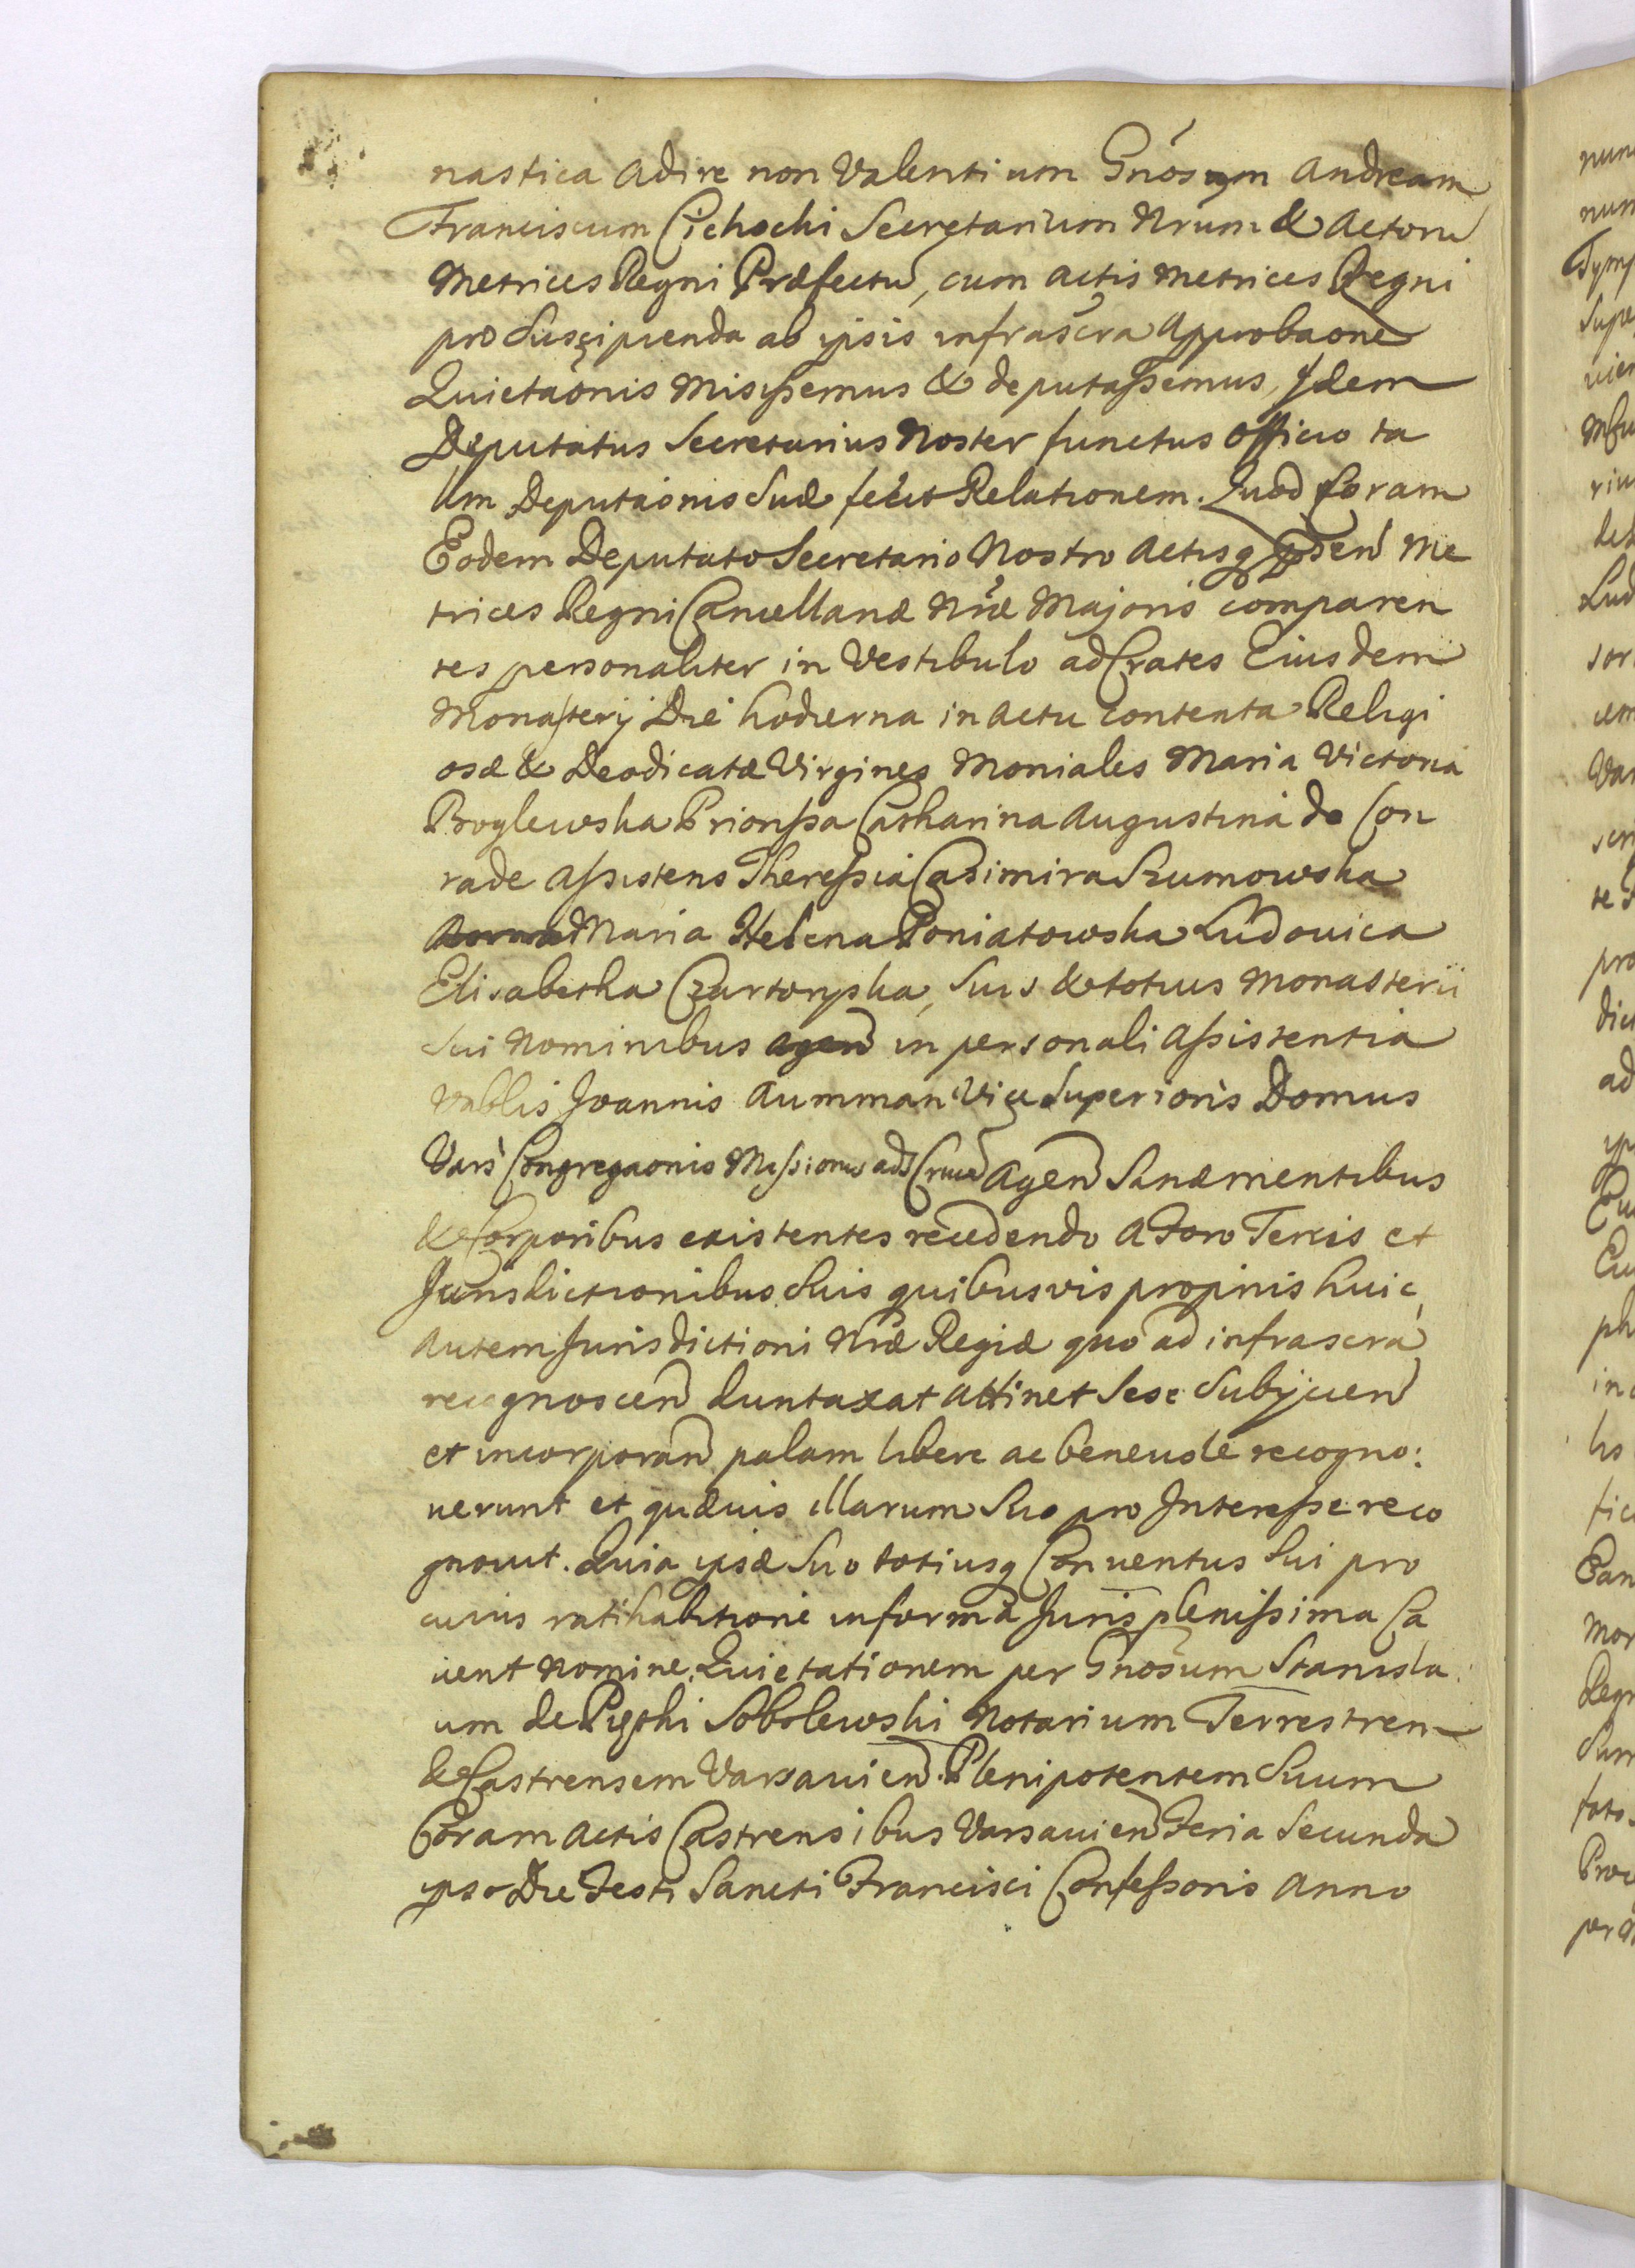 nastica adire non valentium Gnosum Andream
Franciscum Cichocki Secretarium Nrum & Actoru
Metrices Regni Præfectu, cum actis Metrices Regni
pro suscipienda ab ipsis infrascra Approbaone
Quietaonis misissemus & deputassemus, Idem
Deputatus Secretarius Noster functus officio ta
lim Deputaonis suæ fecit Relationem. Quod coram
Eodem Deputato Secretario Nostro Actisq Me
trices Regni Cancellariæ Nræ Majoris comparen
tes personaliter in Vestibulo ad Crates Eiusdem
Monasterij Die hodierna in actu contenta Religi
osæ & Deodicatæ Virgines Moniales Maria Victoria
Boglewska Priorissa Catharina Augustina de Con
rade assistens Theressia Casimira Szumowska
Maria Helena Poniatowska Ludovica
Elisabetha Czartoryska, suis & totius Monasterii
sui Nominibus agen in personali assistentia
Vnblis Joannis Aumman Vice Superioris Domus
Vars Congregaonis Missionis ad S Crucē agen sanæ mentibus
& Corporibus existentes recedendo a Foro Terris et
Jurisdictionibus suis quibusvis proprijs huic
autem Jurisdictioni Nræ Regiæ quo ad infrascra
recognoscen duntaxat attinet sese subijcien
et incorporan palam libere ac benevole recogno:
verunt et quævis illarum suo pro Interesse reco
gnovit. Quia ipsæ suo totiusq Conventus sui pro
cuius ratihabitione in forma Juris plenissima Ca
vent nomine, Quietationem per Gnosum Stanisla
um de Sobolewski Notarium Terrestrem
& Castrensem Varsavien. Plenipotentem suum
Coram actis Castrensibus Varsavien Feria secunda
ipso Die Festi Sancti Francisci Confessoris Anno